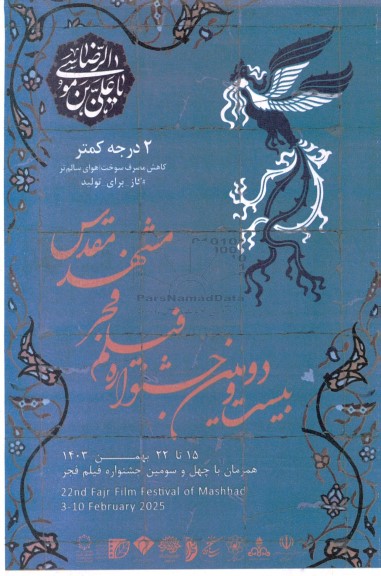 یا علی بن موسی الرضا
۲ درجه کمتر
کاهش مصرف سوخت|هوای سالم‌تر
گاز برای تولید
مشهد مقدس
فیلم فجر
بیست و دومین جشنواره
۱۵ تا ۲۲ بهمن ۱۴۰۳
همزمان با چهل و سومین جشنواره فیلم فجر
22nd Fajr Film Festival of Mashhad
3-10 February 2025
ParsNamadData